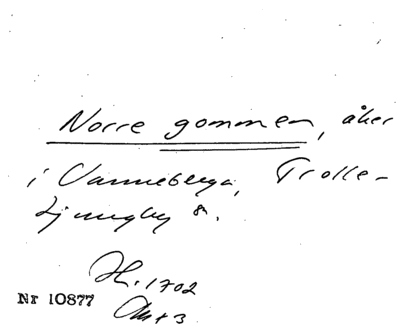 Norre gommen, åker
i Vanneberga, Trolle-
Ljungby sn.
H. 1702
Akt 3
Nr 10877